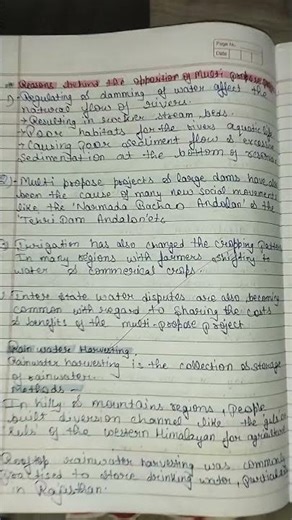 Page No.
Date
* Reasons behind the opposition of Multi propose
1) → Regulating & damming of water affect the
natural flow of rivers.
→ Resulting in stream beds.
→ Poor habitats for the rivers aquatic life
→ Causing poor sediment flow & excessive
sedimentation at the bottom of
2) → Multi propose projects & large dams have also
been the cause of many new social movements
like the 'Narmada Bachan Andolan' & the
'Tehri Dam Andolan' etc
3) Irrigation has also changed the cropping pattern
In many regions with farmers shifting to
water & commerical crops.
Inter state water disputes are also becoming
common with regard to sharing the costs
& benefits of the multi-propose project
Rain water Harvesting
Rainwater harvesting is the collection & storage
of rainwater.
Methods -
In hilly & mountains regions, people
built diversion channel like the
of the western Himalayan for
Rooftop rainwater harvesting was commonly
practised to store drinking water,
in Rajasthan.